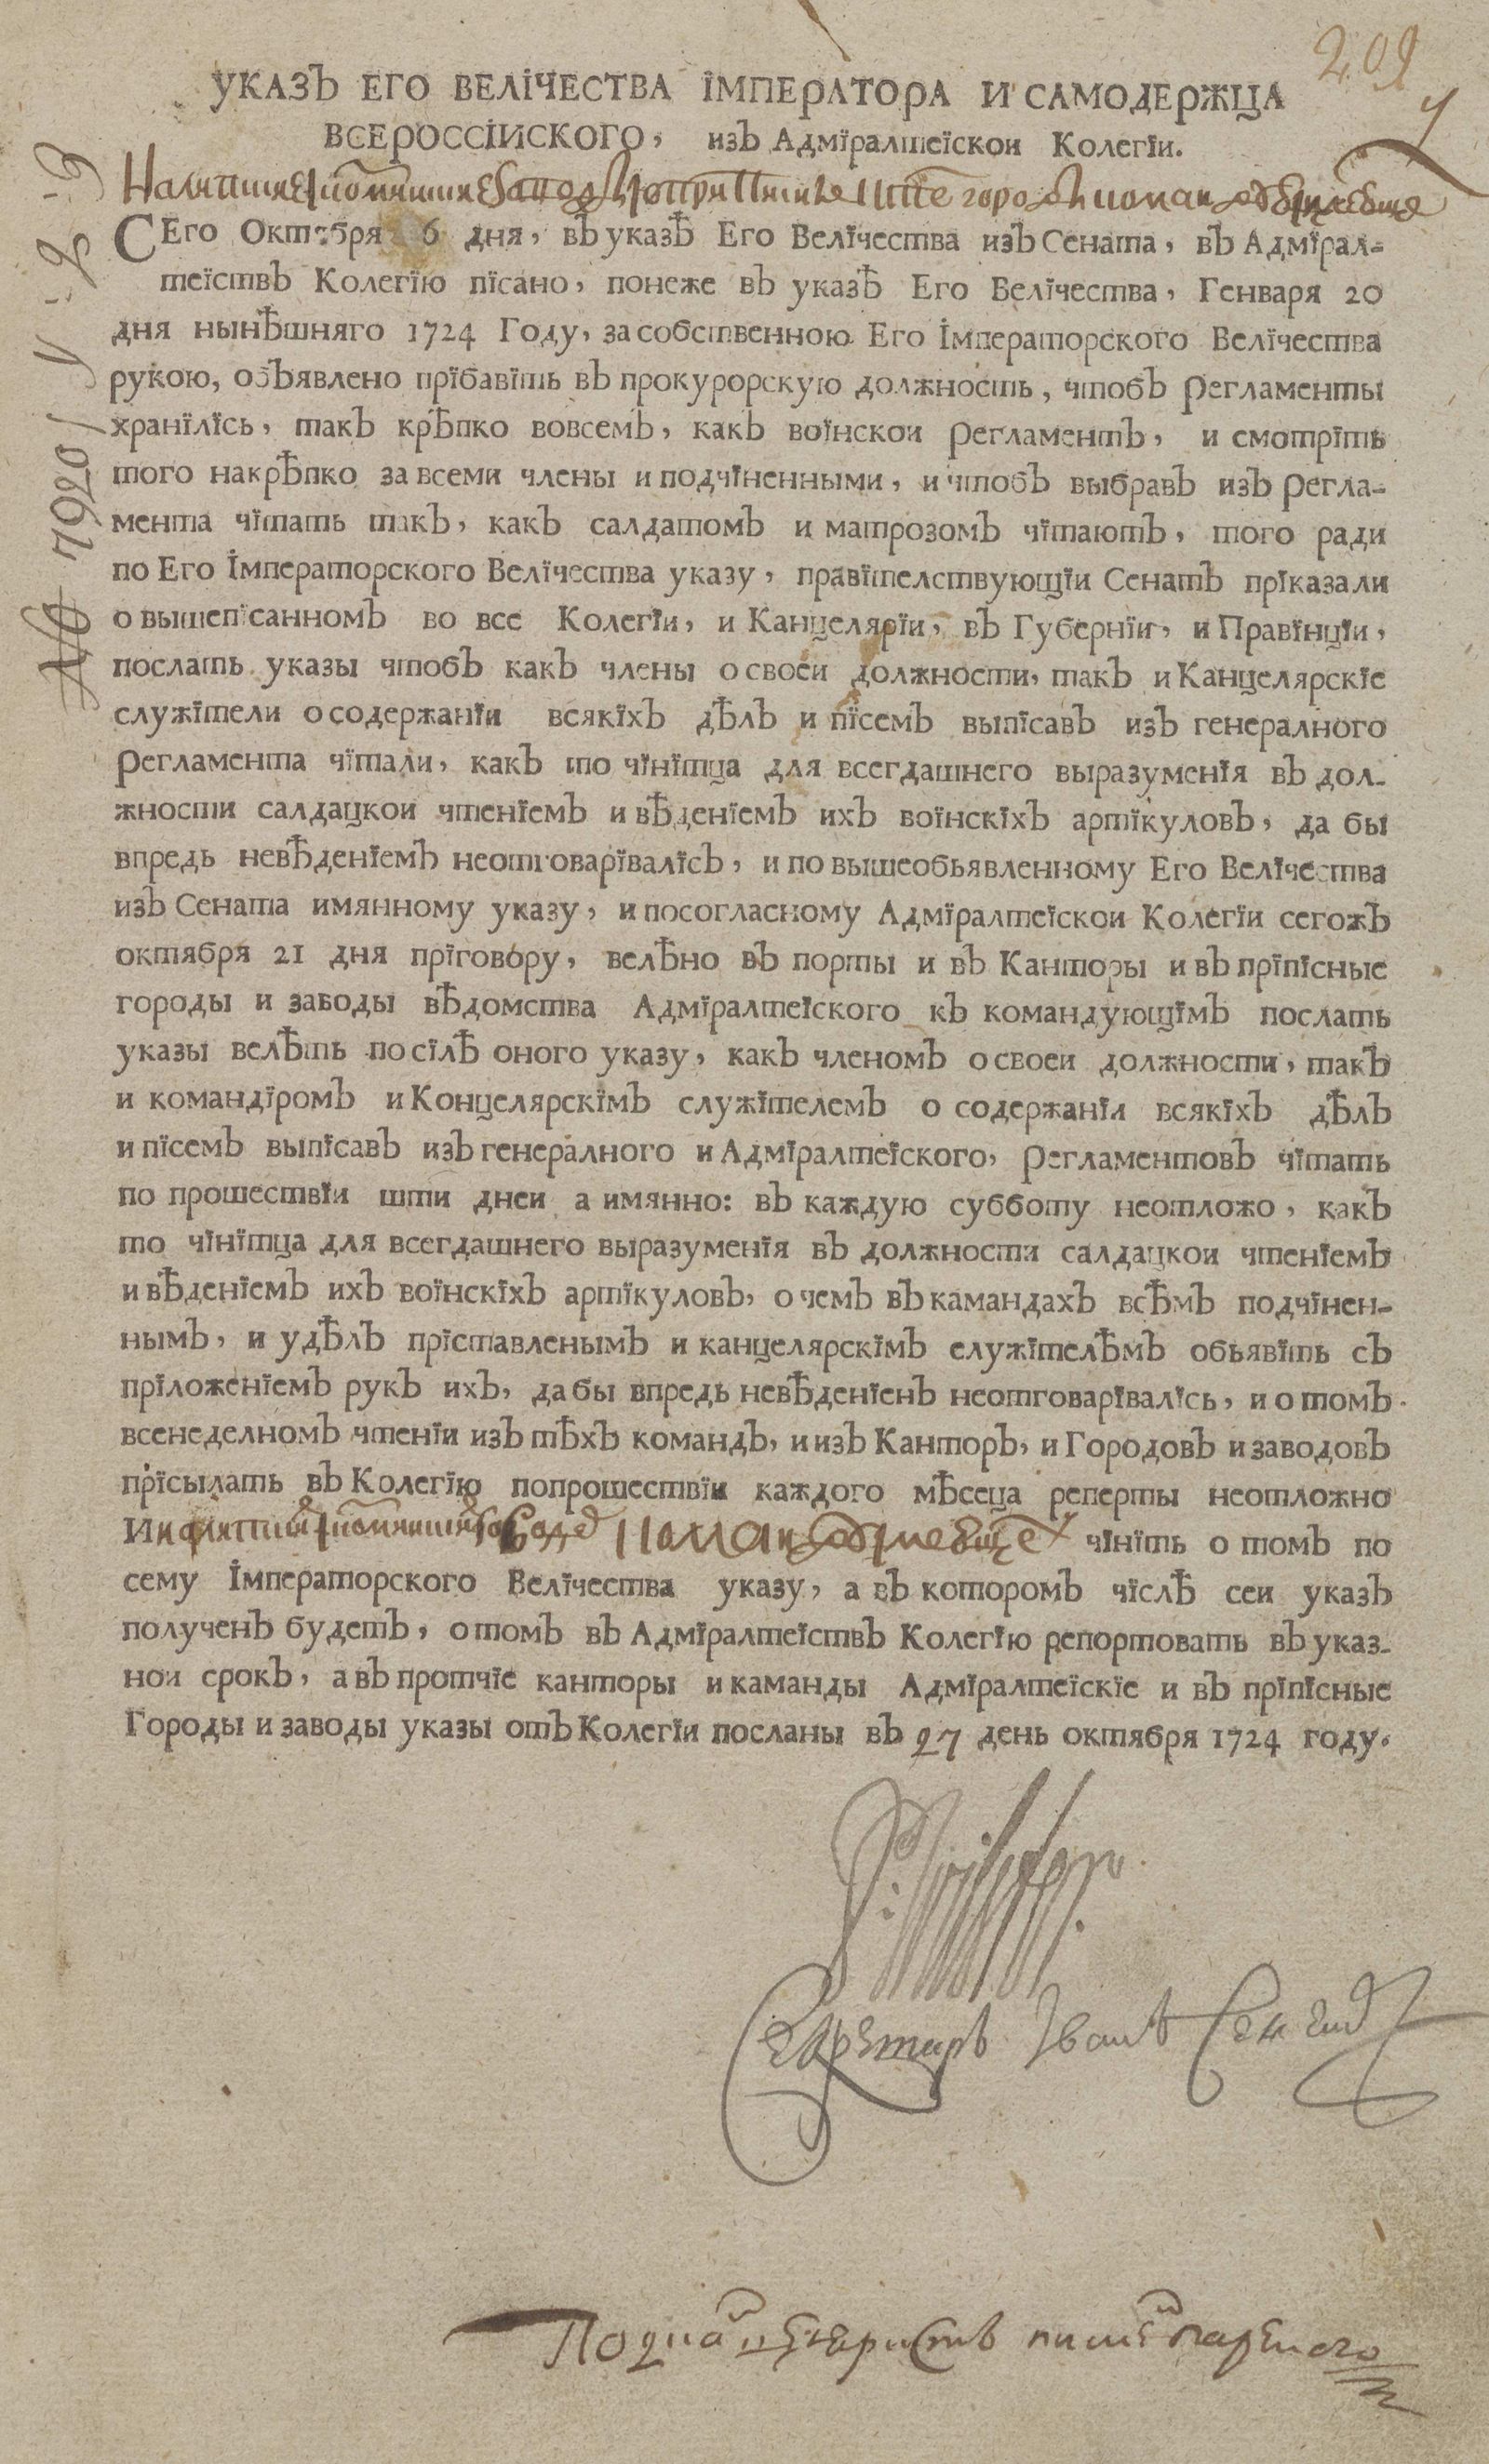 209
УКАЗЪ ЕГО ВЕЛІЧЕСТВА ІМПЕРАТОРА И САМОДЕРЖЦА
ВСЕРОССІИСКОГО, изЪ Адмїралтеїскои Колегїи.
СЕго Октября 6 дня, вЪ указѢ Его Велїчества изЪ Сената, вЪ Адмїрал-
теїствЪ Колегїю пїсано, понеже вЪ указѢ Его Велїчества, Генваря 20
дня нынѢшняго 1724 Году, за собственною Его Імператорского Велїчества
рукою, обЪявлено прїбавїть вЪ прокурорскую должность, чтобЪ регламенты
хранїлїсь, такЪ крѢпко вовсемЪ, какЪ воїнскои регламентЪ, и смотрїть
того накрѢпко за всеми члены и подчїненными, и чтобЪ выбравЪ изЪ регла-
мента чїтать такЪ, какЪ салдатомЪ и матрозомЪ чїтаютЪ, того ради
по Его Імператорского Велїчества указу, правїтелствующїи СенатЪ прїказали
о вышепїсанномЪ во все Колегїи, и Канцелярїи, вЪ Губернїи, и Правїнцїи,
послать указы чтобЪ какЪ члены о своеи должности, такЪ и Канцелярскїе
служїтели о содержанїи всякїхЪ дѢлЪ и пїсемЪ выпїсавЪ изЪ генералного
регламента чїтали, какЪ то чїнїтца для всегдашнего выразуменїя вЪ дол-
жности салдацкои чтенїемЪ и вѢденїемЪ ихЪ воїнскїхЪ артїкуловЪ, да бы
впредь невѢденїемЪ неотговарївалїсь, и по вышеобьявленному Его Велїчества
изЪ Сената имянному указу, и посогласному Адмїралтеїскои Колегїи сегожЪ
октября 21 дня прїговору, велѢно вЪ порты и вЪ Канторы и вЪ прїпїсные
городы и заводы вѢдомства Адмїралтеїского кЪ командующїмЪ послать
указы велѢть по сїлѢ оного указу, какЪ членомЪ о своеи должности, такЪ
и командїромЪ и КонцелярскїмЪ служїтелемЪ о содержанїи всякїхЪ дѢлЪ
и пїсемЪ выпїсавЪ изЪ генералного и Адмїралтеїского, регламентовЪ чїтать
по прошествїи шти днеи а имянно: вЪ каждую субботу неотложо, какЪ
то чїнїтца для всегдашнего выразуменїя вЪ должности салдацкои чтенїемЪ
и вѢденїемЪ ихЪ воїнскїхЪ артїкуловЪ, о чемЪ вЪ камандахЪ всѢмЪ подчїнен-
нымЪ, и удѢлЪ прїставленымЪ и канцелярскїмЪ служїтелѢмЪ обьявїть сЪ
прїложенїемЪ рукЪ ихЪ, да бы впредь невѢденїенЪ неотговарївалїсь, и о томЪ
всенеделномЪ чтенїи изЪ тѢхЪ командЪ, и изЪ КанторЪ, и ГородовЪ и заводовЪ
прїсылать вЪ Колегїю попрошествїи каждого мѢсеца реперты неотложно
чїнїть о томЪ по
сему Імператорского Велїчества указу, а вЪ которомЪ чїслѢ сеи указЪ
полученЪ будетЪ, о томЪ вЪ АдмїралтеїствЪ Колегїю репортовать вЪ указ-
нои срокЪ, а вЪ протчїе канторы и каманды Адмїралтеїскїе и вЪ прїпїсные
Городы и заводы указы отЪ Колегїи посланы вЪ 27 день октября 1724 году.
Секретарь Іванъ